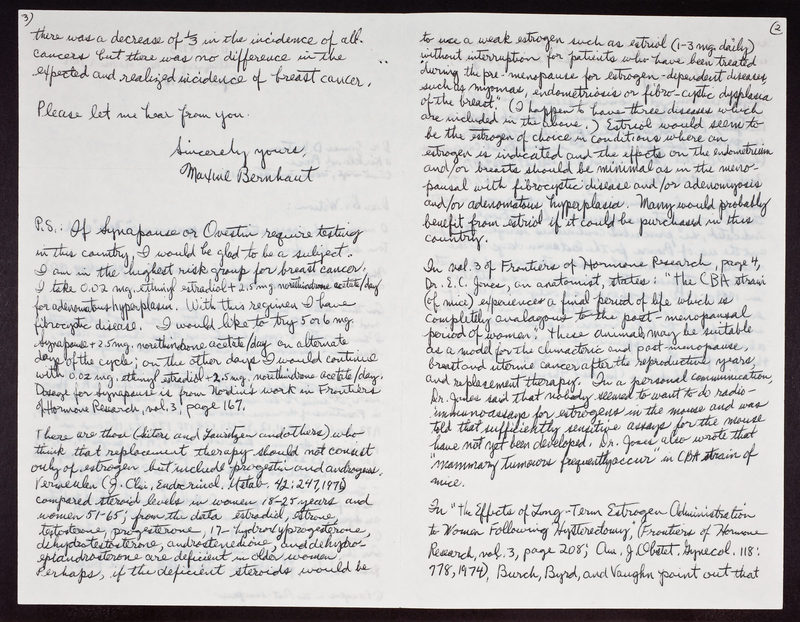 3)
there was a decrease of 1/3 in the incidence of all
cancers but there was no difference in the
expected and realized incidence of breast cancer."
Please let me hear from you.
Sincerely yours,
Maxine Bernhaut
P.S.: If Synapause or Ovestin require testing
in this country, I would be glad to be a subject.
I am in the highest risk group for breast cancer.
I take 0.02 mg. ethinyl estradiol + 2.5 mg. norethindrone acetate/day
for adenomatous hyperplasia. With this regimen I have
fibrocystic disease. I would like to try 5 or 6 mg.
Synapause + 2.5 mg. norethindrone acetate/day on alternate
days of the cycle; on the other days I would continue
with 0.02 mg. ethinyl estradiol + 2.5 mg. norethindrone acetate/day.
Dosage for Synapause is from Nordin's work in Frontiers
of Hormone Research, vol. 3, page 167.
There are those (Lauritzen and others) who
think that replacement therapy should not consist
only of estrogen but include progestin and androgens.
Vermeulen (J. Clin. Endocrinol. Metab. 42:247, 1976)
compared steroid levels in women 18-25 years and
women 51-65; from the data estradiol, estrone,
testosterone, progesterone, 17-hydroxyprogesterone,
dihydrotestosterone, androstenedione, and dehydro-
epiandrosterone are deficient in older women.
Perhaps, if the deficient steroids would be
(2
to use a weak estrogen such as estriol (1-3 mg. daily)
without interruption for patients who have been treated
during the pre-menopause for estrogen-dependent diseases
such as myomas, endometriosis or fibro-cystic dysplasia
of the breast." (I happen to have three diseases which
are included in the above.) Estriol would seem to
be the estrogen of choice in conditions where an
estrogen is indicated and the effects on the endometrium
and/or breasts should be minimal as in the meno-
pausal with fibrocystic disease and/or adenomyosis
and/or adenomatous hyperplasia. Many would probably
benefit from estriol if it could be purchased in this
country.
In vol. 3 of Frontiers of Hormone Research, page 4,
Dr. E.C. Jones, an anatomist, states: "the CBA strain
(of mice) experiences a final period of life which is
completely analagous to the post-menopausal
period of women; these animals may be suitable
as a model for the climacteric and post-menopause,
breast and uterine cancer after the reproductive years,
and replacement therapy. In a personal communication,
Dr. Jones said that nobody seemed to want to do radio-
immunoassays for estrogens in the mouse and was
told that sufficiently sensitive assays for the mouse
have not yet been developed. Dr. Jones also wrote that
"mammary tumours frequently occur" in CBA strain of
mice.
In "The Effects of Long-Term Estrogen Administration
to Women Following Hysterectomy," (Frontiers of Hormone
Research, vol. 3, page 208; Am. J. Obstet. Gynecol. 118:
778, 1974), Burch, Byrd, and Vaughn point out that